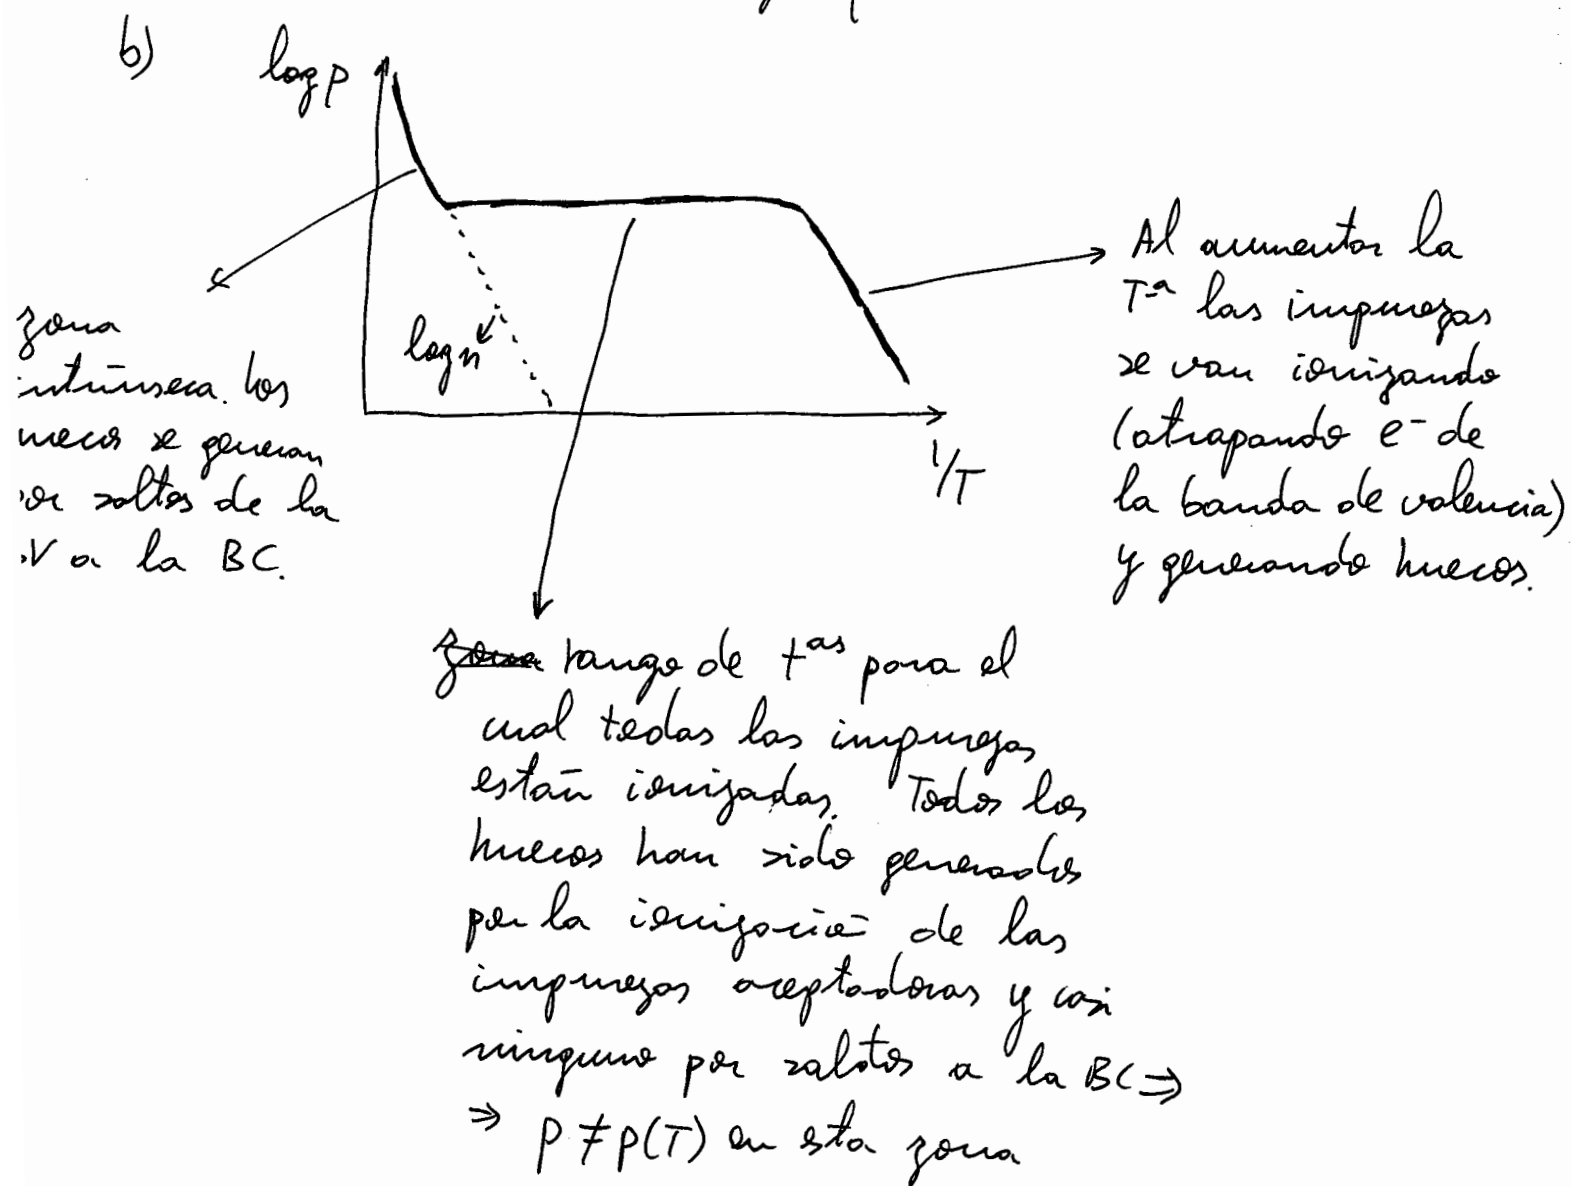 b)
log p
log n
1/T
zona
intrínseca. Los
uecos se generan
or saltos de la
.V a la BC.
Al aumentar la
Tª las impurezas
se van ionizando
(atrapando e⁻ de
la banda de valencia)
y generando huecos.
zona rango de tᵃˢ para el
cual todas las impurezas
están ionizadas. Todos los
huecos han sido generados
por la ionización de las
impurezas aceptadoras y casi
ninguno por saltos a la BC ⇒
⇒ p ≠ p(T) en esta zona